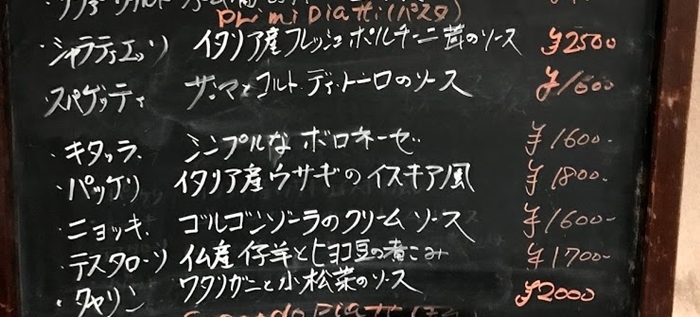 Primi Piatti(パスタ)
・シャラティエッリ イタリア産フレッシュポルチーニ茸のソース ¥2500
スパゲッティ サンマとコルト・ディ・トーロのソース ¥1600
・キタッラ. シンプルな ボロネーゼ ¥1600-
・パッケリ イタリア産ウサギのイスキア風 ¥1800-
・ニョッキ. ゴルゴンゾーラのクリームソース ¥1600-
・テスタローソ 仏産 仔羊とヒヨコ豆の煮こみ ¥1700-
・タヤリン ワタリガニと小松菜のソース ¥2000